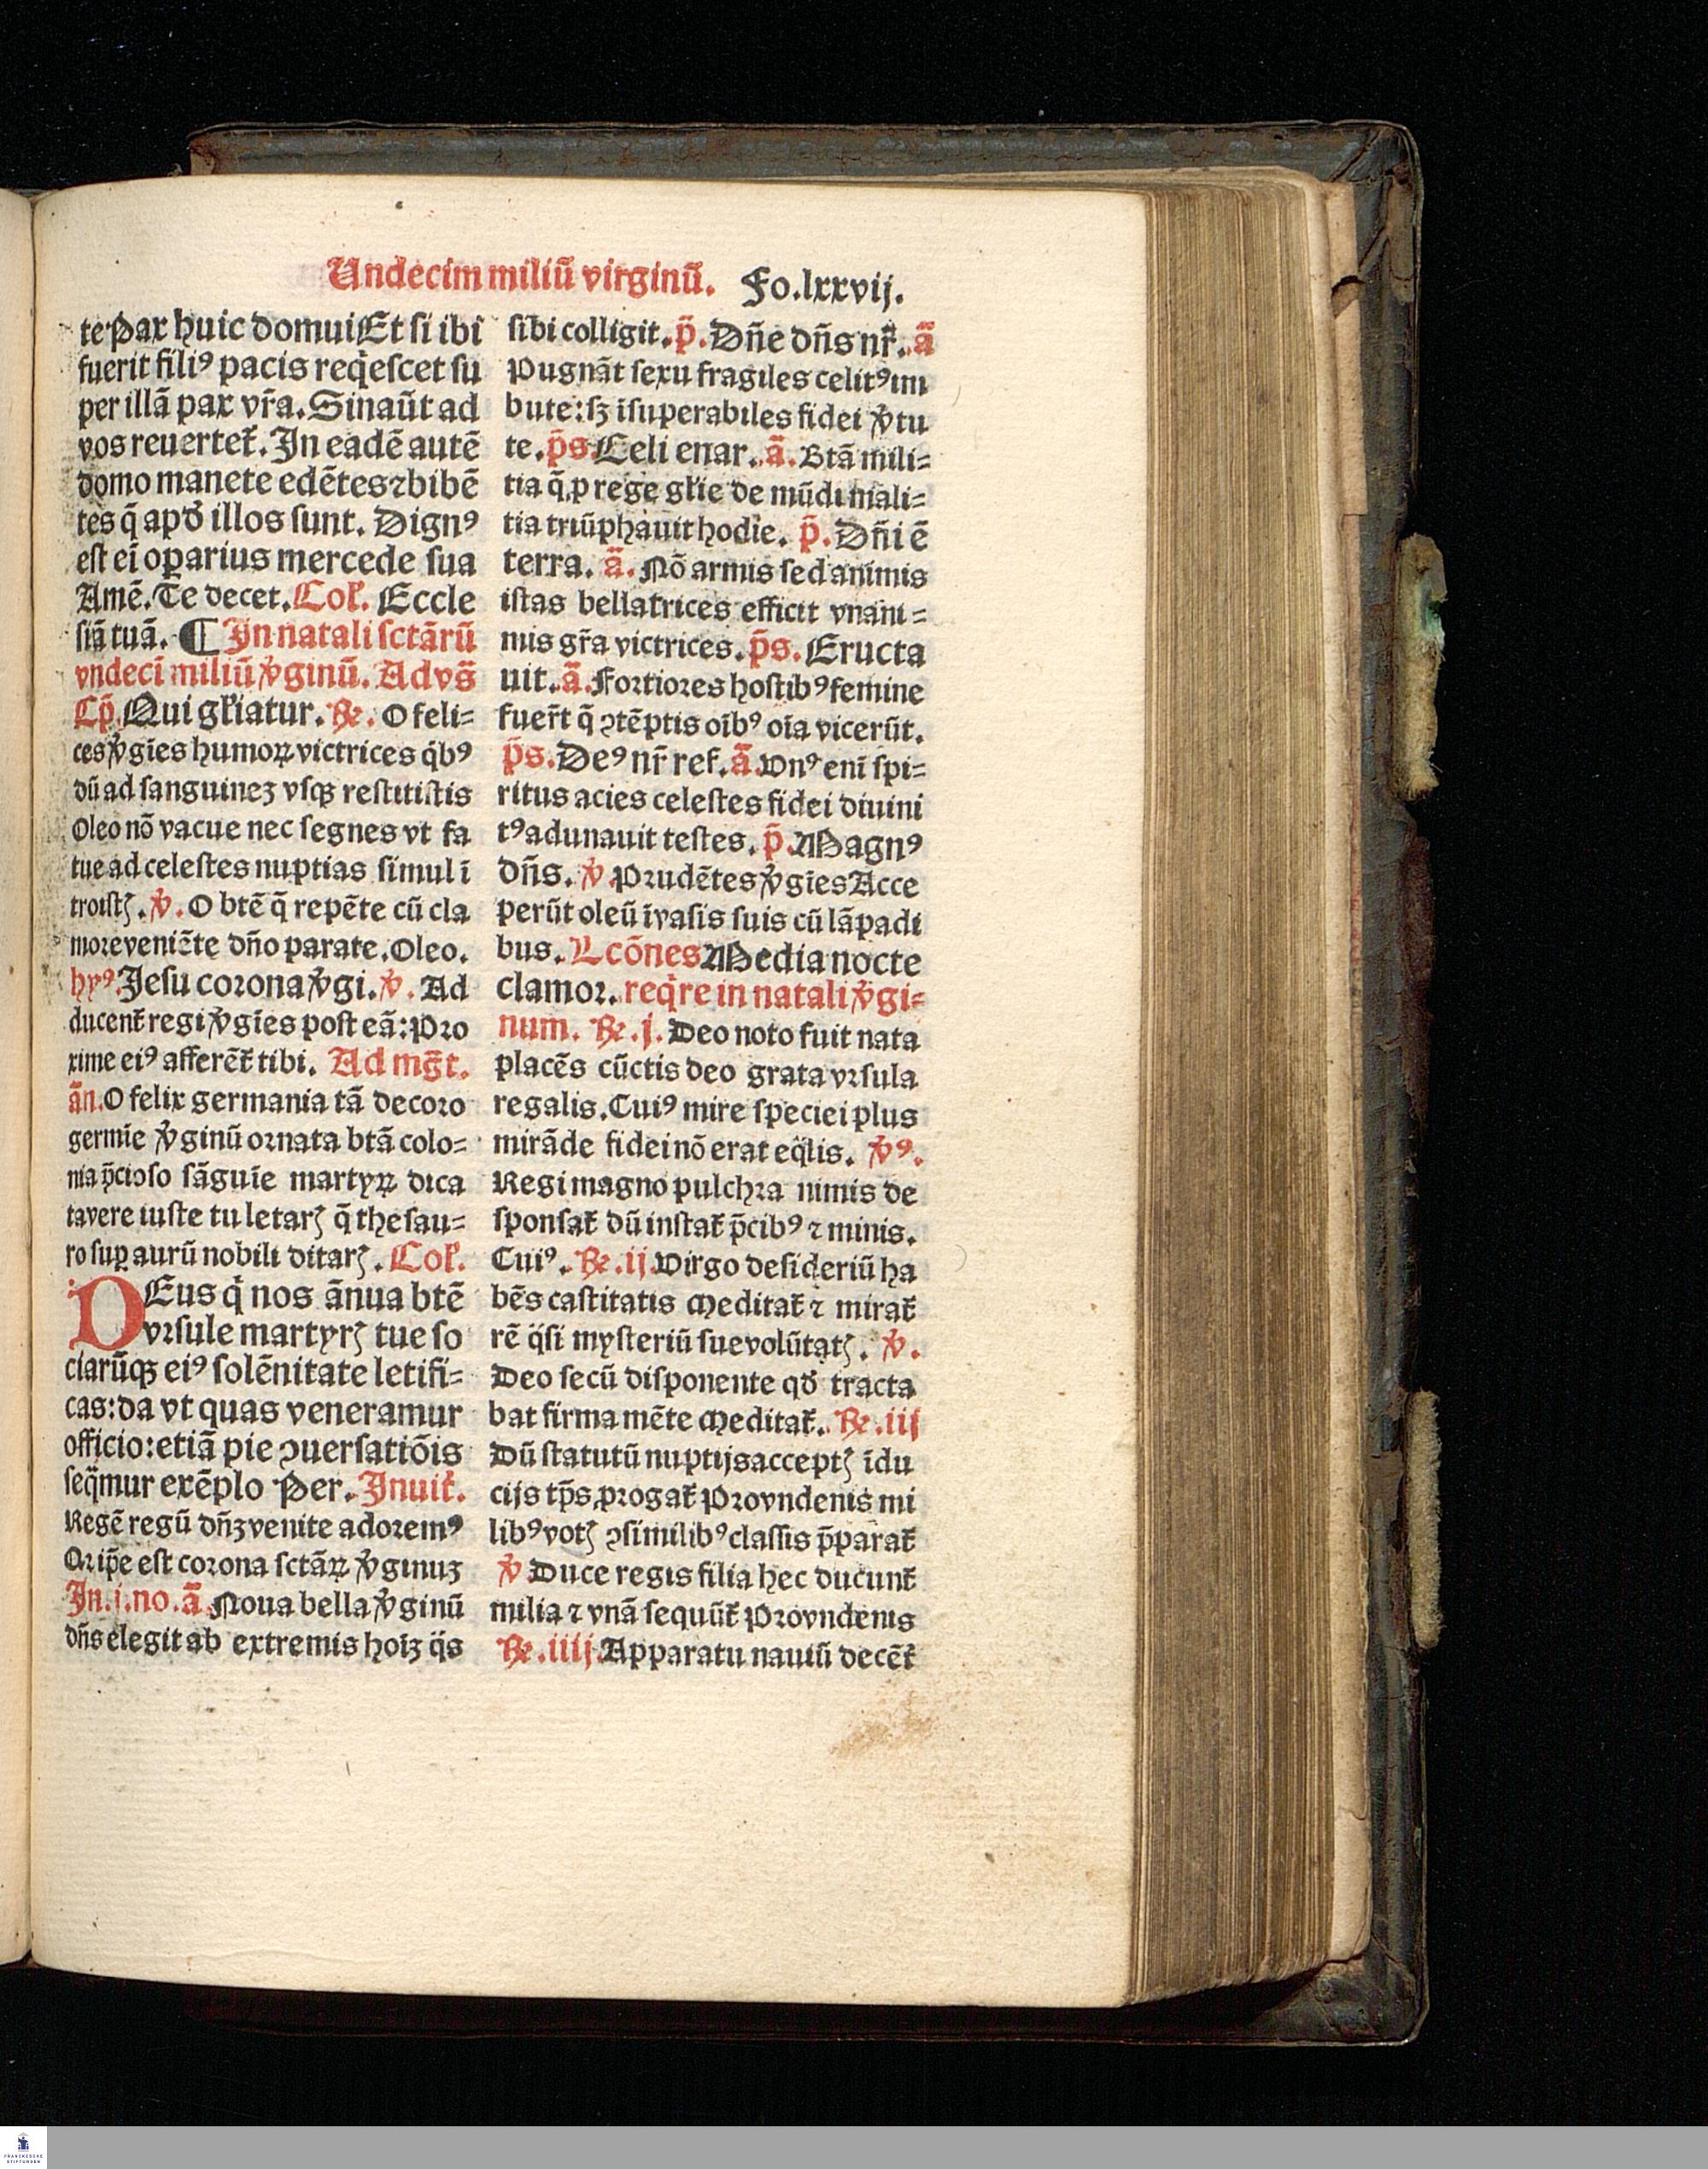 Undecim miliū virginū. Fo.lxxvij.
te Pax huic domui Et si ibi
fuerit fili⁹ pacis reqͥescet su
per illā pax vr̄a. Sinaūt ad
vos reuertet̄. In eadē autē
domo manete edētes ⁊ bibē
tes q̄ apđ illos sunt. Dign⁹
est ei oꝑarius mercede sua
Amē. Te decet. Coll'. Eccle
siā tuā. ¶ In natali sctārū
vndeci miliū v̓ginū. Ad vs̄
Cp̄. Qui gl'iatur. ℞. O feli⸗
ces v̓gīes humoꝝ victrices qͥb⁹
dū ad sanguineꝫ vsqꝫ restitistis
Oleo nō vacue nec segnes vt fa
tue ad celestes nuptias simul ī
troistꝭ. v̓. O btē q̄ repēte cū cla
more veniēte dn̄o parate. Oleo.
hy⁹. Jesu corona v̓gi. v̓. Ad
ducent̄ regi v̓gīes post eā: Pro
xime ei⁹ afferēt̄ tibi. Ad mg̅t.
ān. O felix germania tā decoro
germīe v̓ginū ornata btā colo⸗
nia p̄cioso sāguīe martyꝝ dica
ta vere iuste tu letarꝭ q̄ thesau⸗
ro suꝑ aurū nobili ditarꝭ. Coll'.
DEus qͥ nos ānua btē
vrsule martyrꝭ tue so
ciarūqꝫ ei⁹ solēnitate letifi⸗
cas: da vt quas veneramur
officio: etiā pie ꝯuersatiōis
seqͣmur exēplo Per. Inuit̄.
Regē regū dn̄ꝫ venite adorem⁹
Qr ip̄e est corona sctāꝝ v̓ginuꝫ
In .i. no. ā. Noua bella v̓ginū
dn̄s elegit ab extremis hoīꝫ qͣs
sibi colligit. p̄. Dn̄e dn̄s nr̄. ā
Pugnāt sexu fragiles celit⁹ im
bute: sꝫ īsuperabiles fidei v̓tu
te. p̄s. Celi enar. ā. Btā mili⸗
tia q̄ ꝓ rege gl'ie de mūdi mali⸗
tia triūphauit hodie. p̄. Dn̄i ē
terra. ā. Nō armis sed animis
istas bellatrices efficit vnani⸗
mis gr̄a victrices. p̄s. Eructa
uit. ā. Fortiores hostib⁹ femine
fuer̄t q̄ ꝯtēptis oīb⁹ oīa vicerūt.
p̄s. De⁹ nr̄ ref. ā. Vn⁹ enī spi⸗
ritus acies celestes fidei diuini
t⁹ adunauit testes. p̄. Magn⁹
dn̄s. v̓. Prudētes v̓gīes Acce
perūt oleū ī vasis suis cū lāpadi
bus. Lcōnes Media nocte
clamor. reqͥre in natali v̓gi⸗
num. ℞. j. Deo noto fuit nata
placēs cūctis deo grata vrsula
regalis. Cui⁹ mire speciei plus
mirāde fidei nō erat eqͣlis. v̓⁹.
Regi magno pulchra nimis de
sponsat̄ dū instat̄ p̄cib⁹ ⁊ minis.
Cui⁹. ℞. ij. Virgo desideriū ha
bēs castitatis Meditat̄ ⁊ mirat̄
rē qͣsi mysteriū sue volūtatꝭ. v̓.
Deo secū disponente qđ tracta
bat firma mēte Meditat̄. ℞. iij
Dū statutū nuptijs acceptꝭ īdu
cijs tp̄s ꝓrogat̄ Pro vndenis mi
lib⁹ votꝭ ꝯsimilib⁹ classis p̄parat̄
v̓ Duce regis filia hec ducunt̄
milia ⁊ vnā sequūt̄ Pro vndenis
℞. iiij. Apparatu nauiū decēt̄
FRANCKESCHE
STIFTUNGEN